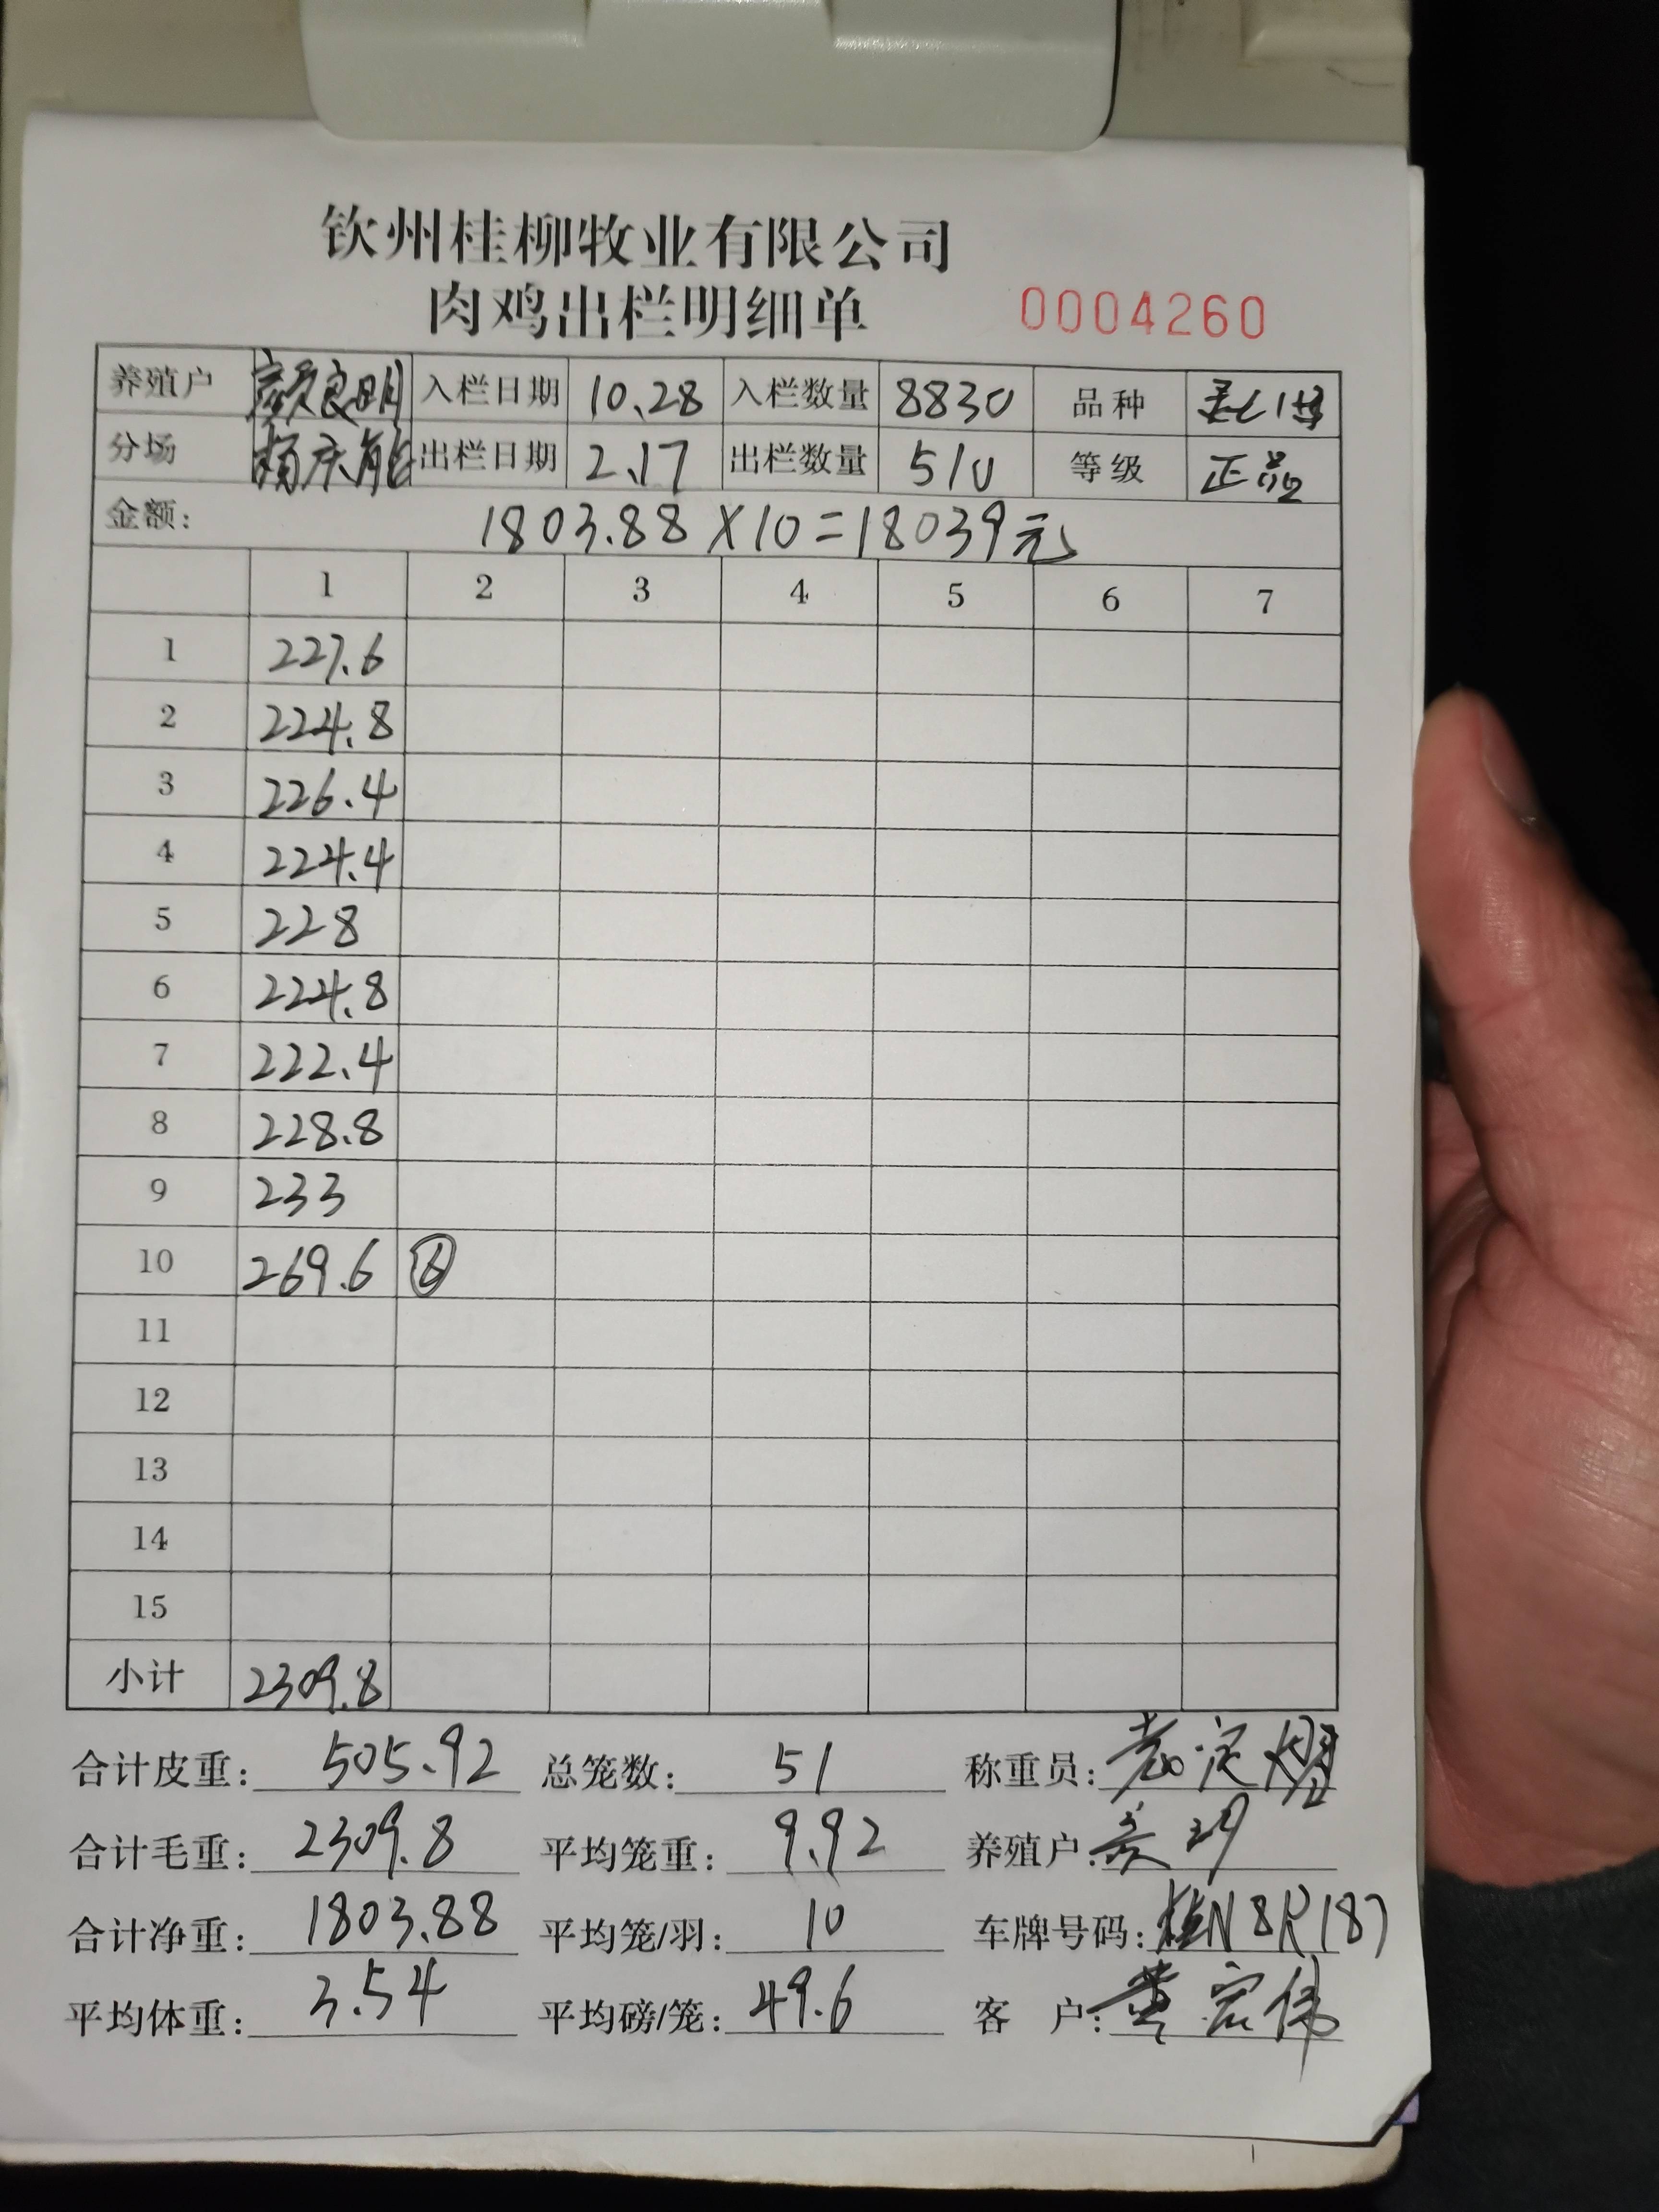 钦州桂柳牧业有限公司
肉鸡出栏明细单 0004260
养殖户 颜良明 入栏日期 10.28 入栏数量 8830 品种
分场 杨庆能 出栏日期 2.17 出栏数量 510 等级 正品
金额: 1803.88×10=18039元
1 2 3 4 5 6 7
1 227.6
2 224.8
3 226.4
4 224.4
5 228
6 224.8
7 222.4
8 228.8
9 233
10 269.6 ⑥
11
12
13
14
15
小计 2309.8
合计皮重: 505.92 总笼数: 51 称重员:
合计毛重: 2309.8 平均笼重: 9.92 养殖户:
合计净重: 1803.88 平均笼/羽: 10 车牌号码: 桂N8R187
平均体重: 3.54 平均磅/笼: 49.6 客 户: 黄宏伟